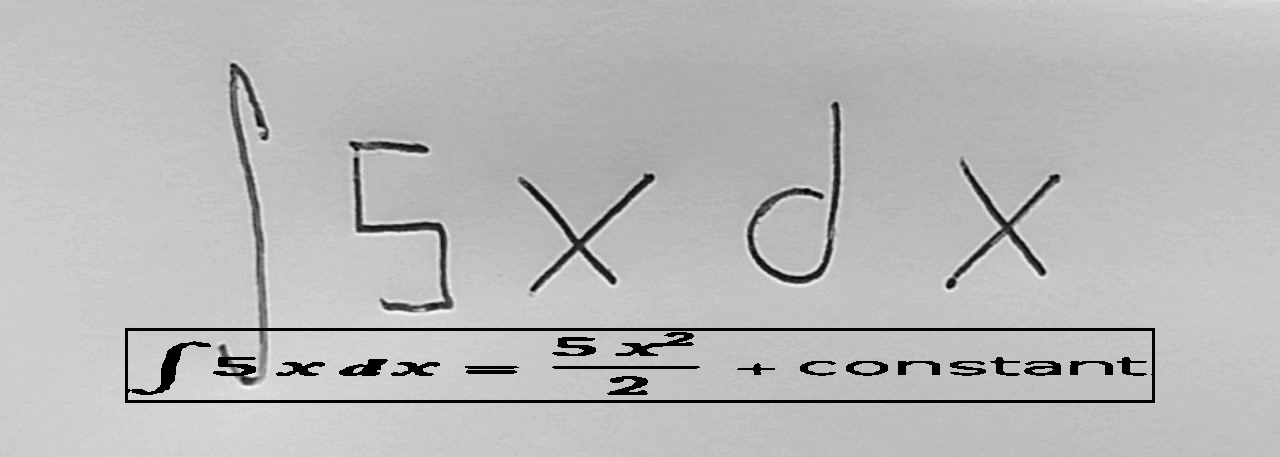 ∫ 5 x d x
∫ 5 x dx = 5 x²/2 + constant